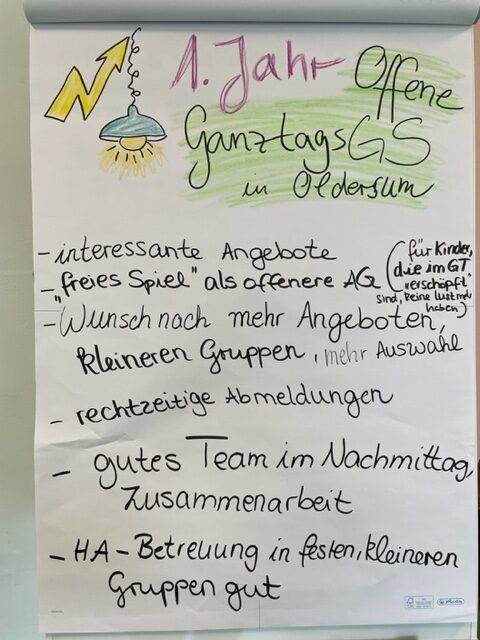 1. Jahr Offene
GanztagsGS
in Oldersum
- interessante Angebote
- "freies Spiel" als offenere AG (für Kinder,
die im GT
"erschöpft"
sind, keine Lust mehr
haben)
- Wunsch nach mehr Angeboten,
kleineren Gruppen, mehr Auswahl
- rechtzeitige Abmeldungen
- gutes Team im Nachmittag,
Zusammenarbeit
- HA - Betreuung in festen, kleineren
Gruppen gut